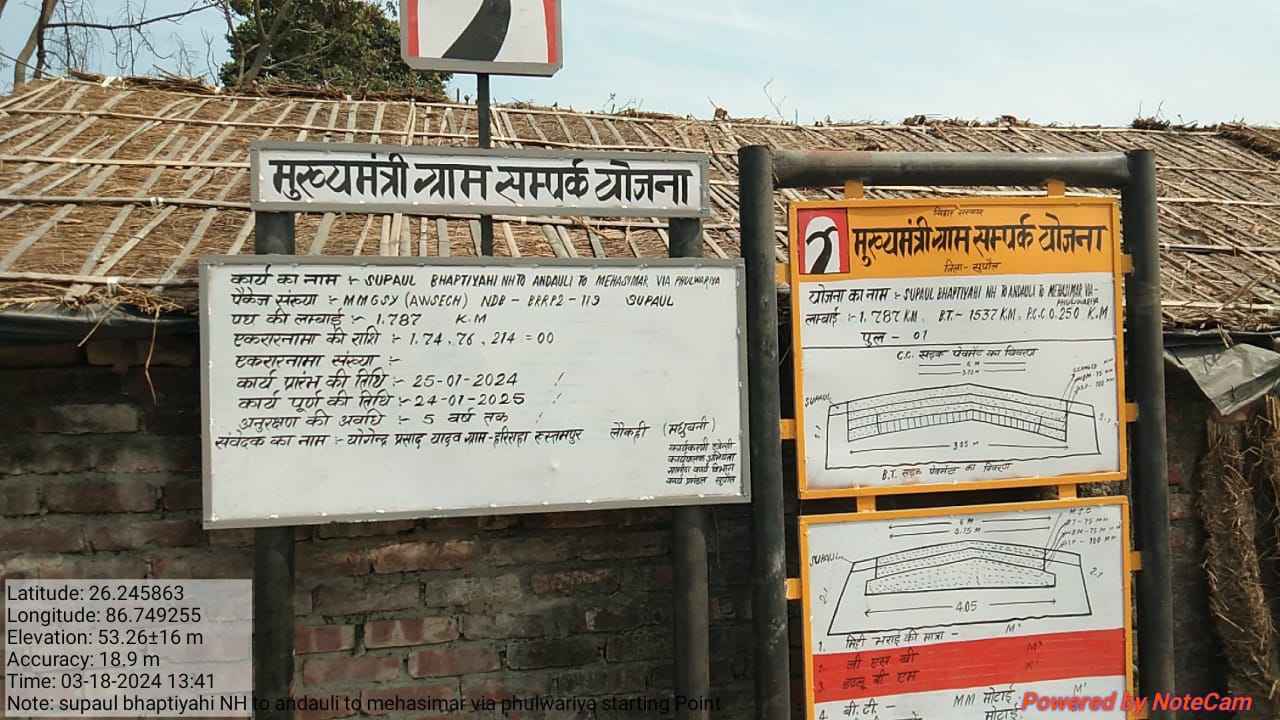 मुख्यमंत्री ग्राम सम्पर्क योजना
कार्य का नाम :- SUPAUL BHAPTIYAHI NH TO ANDAULI TO MEHASIMAR VIA PHULWARIYA
पैकेज संख्या :- MMGSY (AWSECH) NDB - BRRP2 - 119 SUPAUL
पथ की लम्बाई :- 1.787 K.M
एकरारनामा की राशि :- 1,74,76,214=00
एकरारनामा संख्या :-
कार्य प्रारंभ की तिथि :- 25-01-2024
कार्य पूर्ण की तिथि :- 24-01-2025
अनुरक्षण की अवधि :- 5 वर्ष तक
संवेदक का नाम :- योगेन्द्र प्रसाद यादव ग्राम-हरिराहा रूस्तमपुर लौकही (मधुबनी)
कार्यकारी एजेन्सी
कार्यपालक अभियंता
ग्रामीण कार्य विभाग
कार्य प्रमंडल सुपौल
बिहार सरकार
मुख्यमंत्री ग्राम सम्पर्क योजना
जिला- सुपौल
योजना का नाम :- SUPAUL BHAPTIYAHI NH TO ANDAULI TO MEHASIMAR VIA-PHULWARIYA
लम्बाई :- 1.787 KM, B.T- 1537 KM, P.C.C 0.250 K.M
पुल - 01
C.C. सड़क पेवमेंट का विवरण
6 M
3.75 M
SUPAUL
3.05 M
B.T. सड़क पेवमेंट का विवरण
6 M
3.75 M
M.S.C
BT-75 MM
SUPAUL
4.05
1. मिट्टी भराई की मात्रा - M³
2. जी एस बी M³
3. डब्लू बी एम M³
4. बी.टी.- MM मोटाई M³
मोटाई
Latitude: 26.245863
Longitude: 86.749255
Elevation: 53.26±16 m
Accuracy: 18.9 m
Time: 03-18-2024 13:41
Note: supaul bhaptiyahi NH to andauli to mehasimar via phulwariya starting Point
Powered by NoteCam